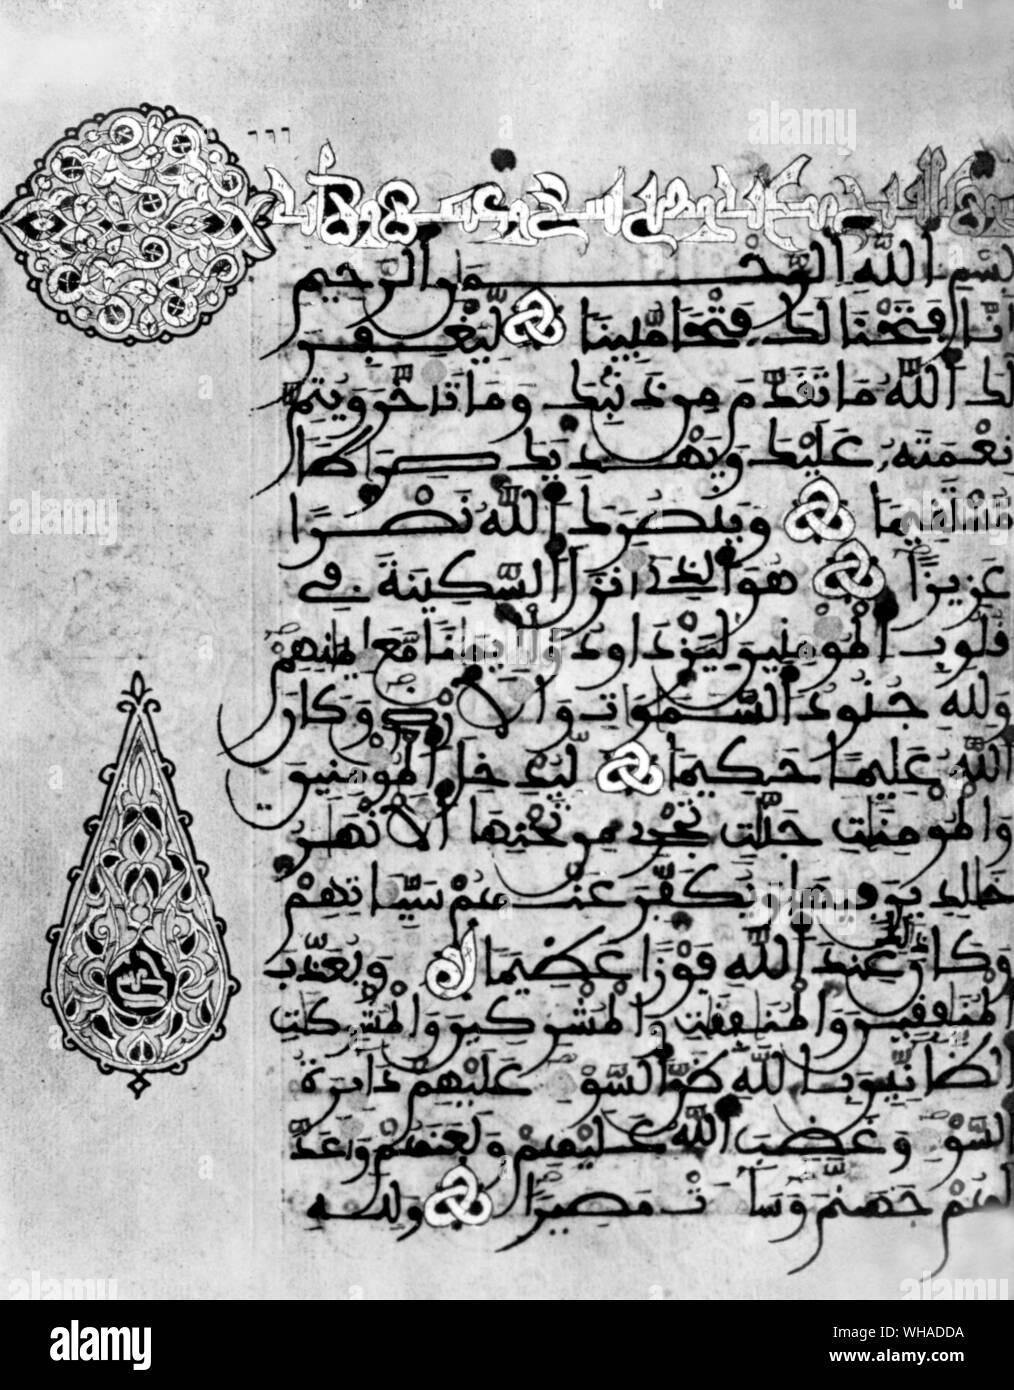 ٦٦٦
بسم الله الرحمن الرحيم
انا فتحنا لك فتحا مبينا ليغفر
لك الله ما تقدم من ذنبك وما تاخر ويتم
نعمته عليك ويهديك صراطا
مستقيما وينصرك الله نصرا
عزيزا هو الذي انزل السكينة في
قلوب المومنين ليزدادوا ايمانا مع ايمنهم
ولله جنود السموات والارض وكان
الله عليما حكيما ليدخل المومنين
والمومنت جنت تجري من تحتها الانهر
خالدين فيها ويكفر عنهم سيئاتهم
وكان ذلك عند الله فوزا عظيما ويعذب
المنفقين والمنفقت والمشركين والمشركت
الظانين بالله ظن السوء عليهم دايرة
السوء وغضب الله عليهم ولعنهم واعد
لهم جهنم وساءت مصيرا ولله
alamy
Image ID: WHADDA
www.alamy.com